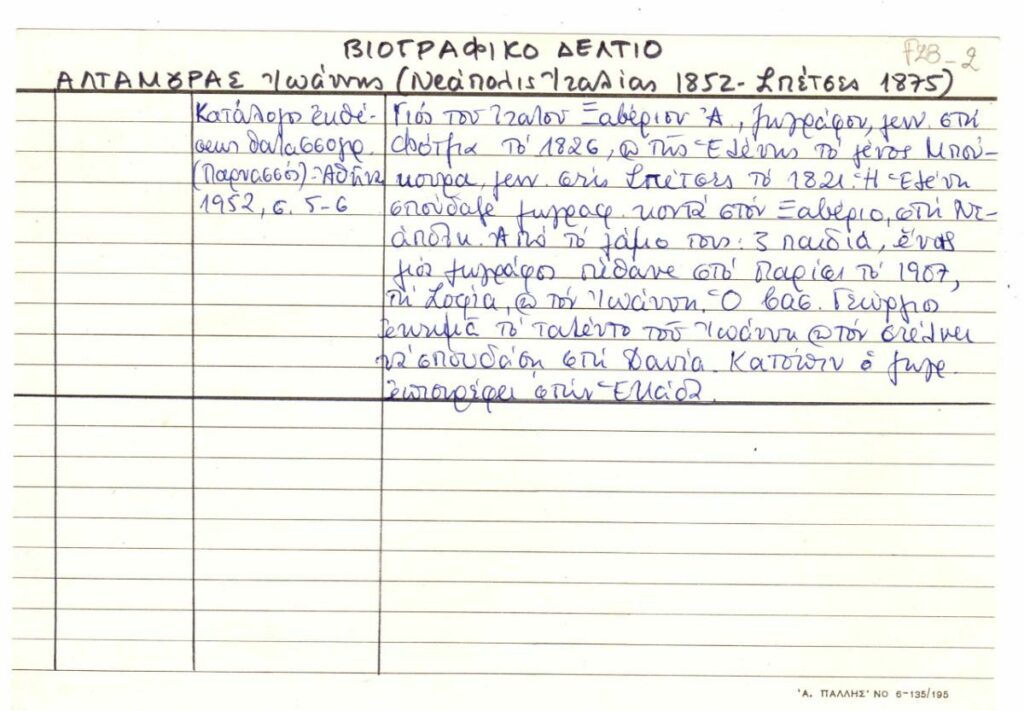 ΒΙΟΓΡΑΦΙΚΟ ΔΕΛΤΙΟ
FZB-2
ΑΛΤΑΜΟΥΡΑΣ Ἰωάννης (Νεάπολις Ἰταλίας 1852- Σπέτσες 1875)
Κατάλογος ἐκθέ-
σεως θαλασσογρ.
(Παρνασσός)-Ἀθῆνα
1952, σ. 5-6
Γιός του Ἰταλου Ξαβέριου Ἀ, ζωγράφου, γεν. στή
Φότζια τό 1826, @ τῆς Ἑλένης τό γένος Μπού-
κουρα, γεν. στίς Σπέτσες τό 1821. Ἡ Ἑλένη
σπούδαξε ζωγραφ. κοντά στόν Ξαβέριο, στή Νε-
άπολη. Ἀπό τό γάμο τους: 3 παιδιά, ἕνας
γιός ζωγράφος πέθανε στό Παρίσι τό 1907,
τή Σοφία, @ τόν Ἰωάννη. Ὁ βασ. Γεώργιος
ἐκτιμᾶ τό ταλέντο τοῦ Ἰωάννη @ τόν στέλνει
νά σπουδάση στή Δανία. Κατόπιν ὁ ζωγρ.
ἐπιστρέφει στήν Ἑλλάδα.
'Α. ΠΑΛΛΗΣ' ΝΟ 6-135/195